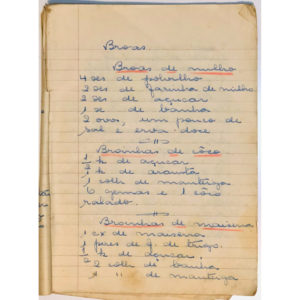 Broas
Broas de milho
4 xes de polvilho
2 xes de farinha de milho
2 xes de açucar
1 xe de banha
2 ovos, um pouco de
sal e erva doce
Broinhas de côco
1/2 k de açucar
1/2 k de araruta
1 colh de manteiga
6 gemas e 1 côco
ralado.
Broinhas de maisena
1 cx de maisena
1 pires de f. de trigo.
1/2 k de açucar.
2 colh de banha
" " de manteiga